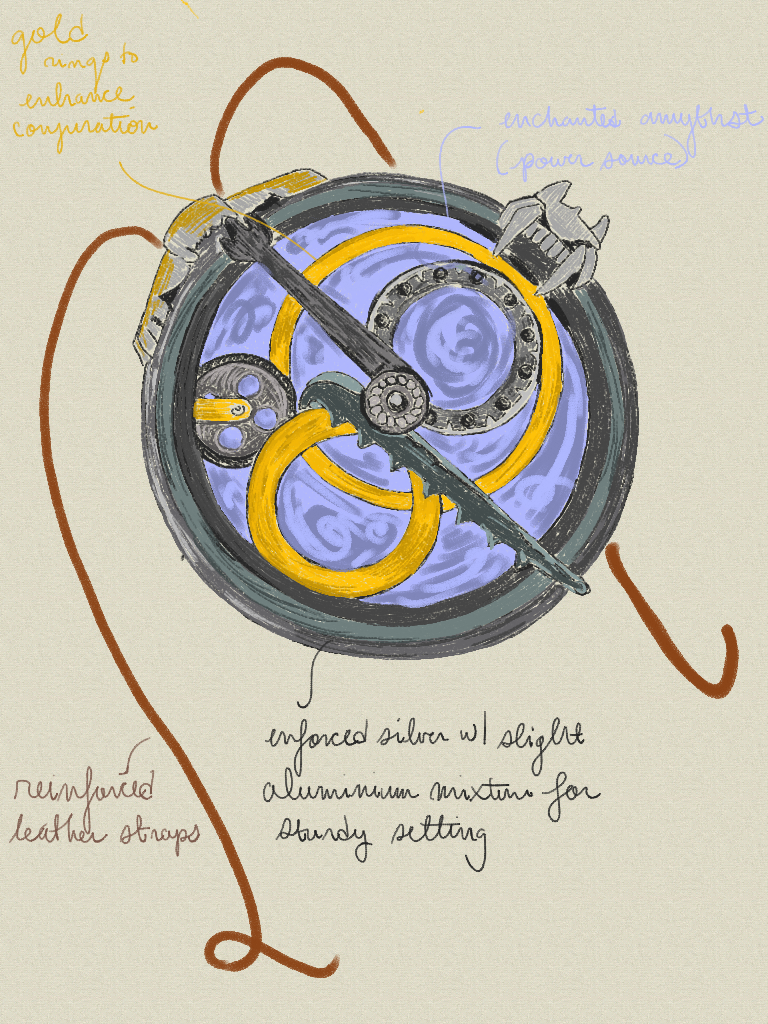 gold
rings to
enhance
conjuration
enchanted amythst
(power source)
enforced silver w/ slight
aluminium mixture for
sturdy setting
reinforced
leather straps